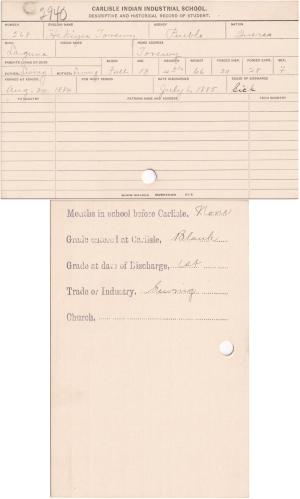 2940
CARLISLE INDIAN INDUSTRIAL SCHOOL.
DESCRIPTIVE AND HISTORICAL RECORD OF STUDENT.
NUMBER ENGLISH NAME AGENCY NATION
568 Pueblo
BAND HOME ADDRESS
Laguna
PARENTS LIVING OR DEAD BLOOD AGE HEIGHT WEIGHT FORCED INSP. FORCED EXPR. SEX
FATHER Living MOTHER Living Full 13 66 28 F
ARRIVED AT SCHOOL FOR WHAT PERIOD DATE DISCHARGED CAUSE OF DISCHARGE
Aug. 1884 July 6, 1885 Sick
TO COUNTRY PATRONS NAME AND ADDRESS FROM COUNTRY
Months in school before Carlisle, None
Grade entered at Carlisle, Blank
Grade at date of Discharge, 1st
Trade or Industry, Sewing
Church,